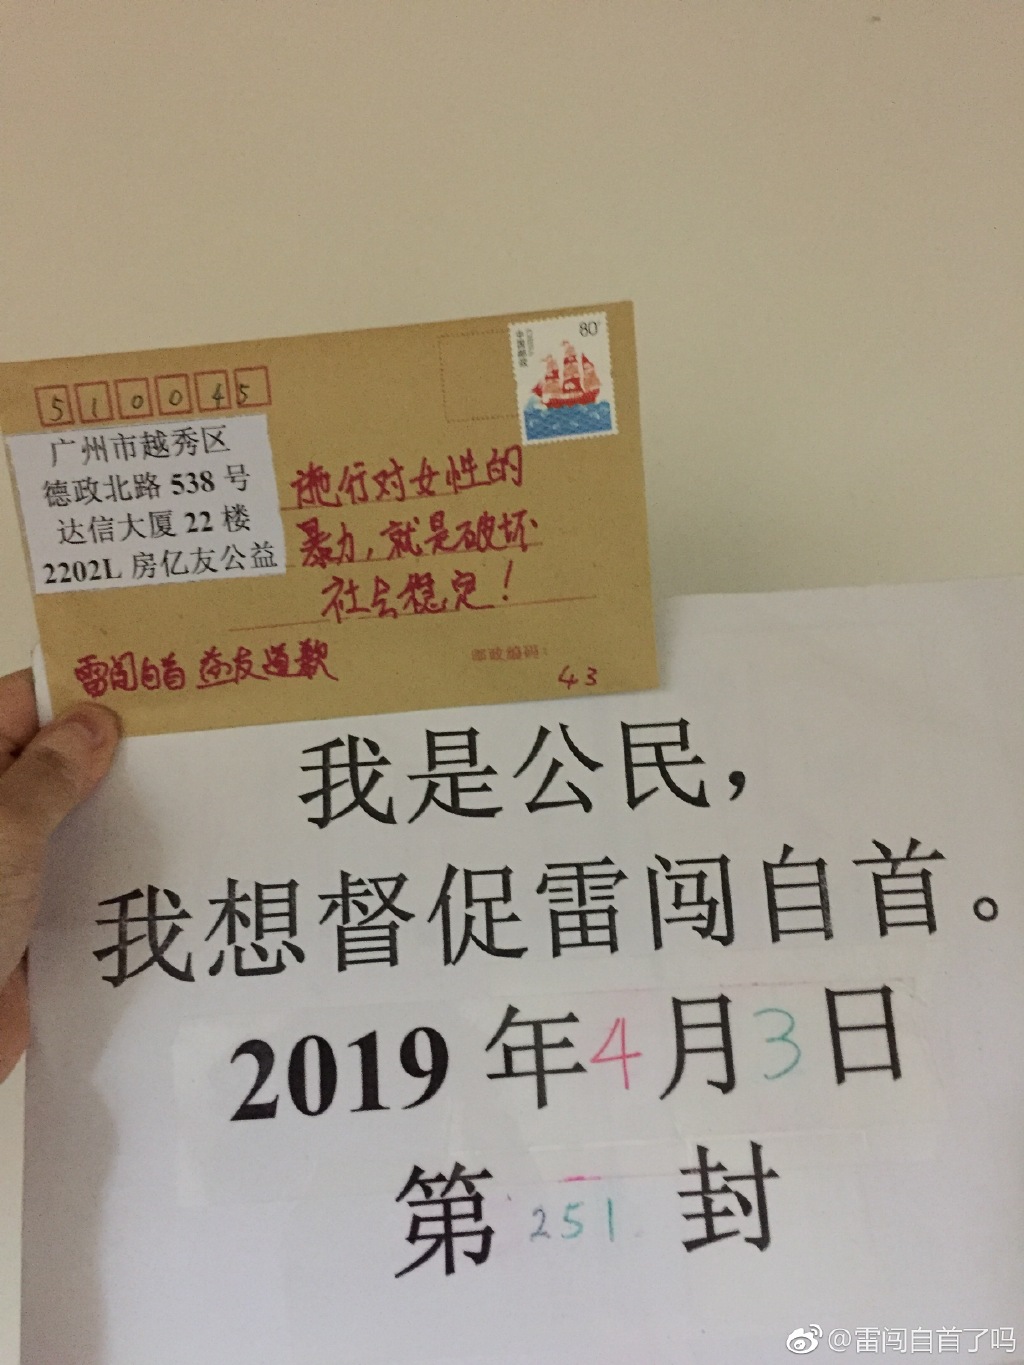 80
中国邮政
510045
广州市越秀区
德政北路 538 号
达信大厦 22 楼
2202L 房亿友公益
施行对女性的
暴力，就是破坏
社会稳定！
雷闯自首 益友道歉
邮政编码：
43
我是公民，
我想督促雷闯自首。
2019 年4月3日
第 251 封
@雷闯自首了吗